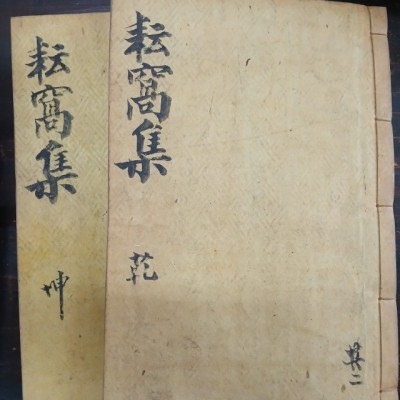 耘窩集
乾
其二
耘窩集
坤